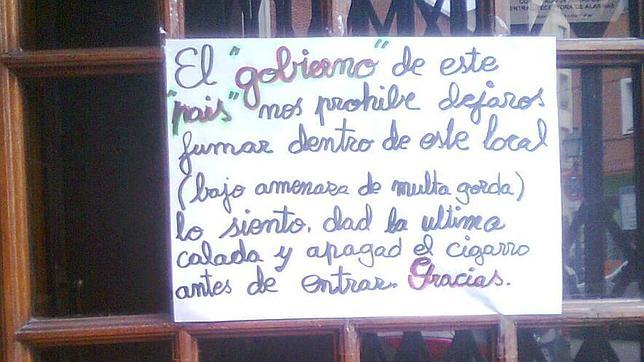 El "gobierno" de este
"pais" nos prohibe dejaros
fumar dentro de este local
(bajo amenaza de multa gorda)
lo siento. dad la ultima
calada y apagad el cigarro
antes de entrar. Gracias.